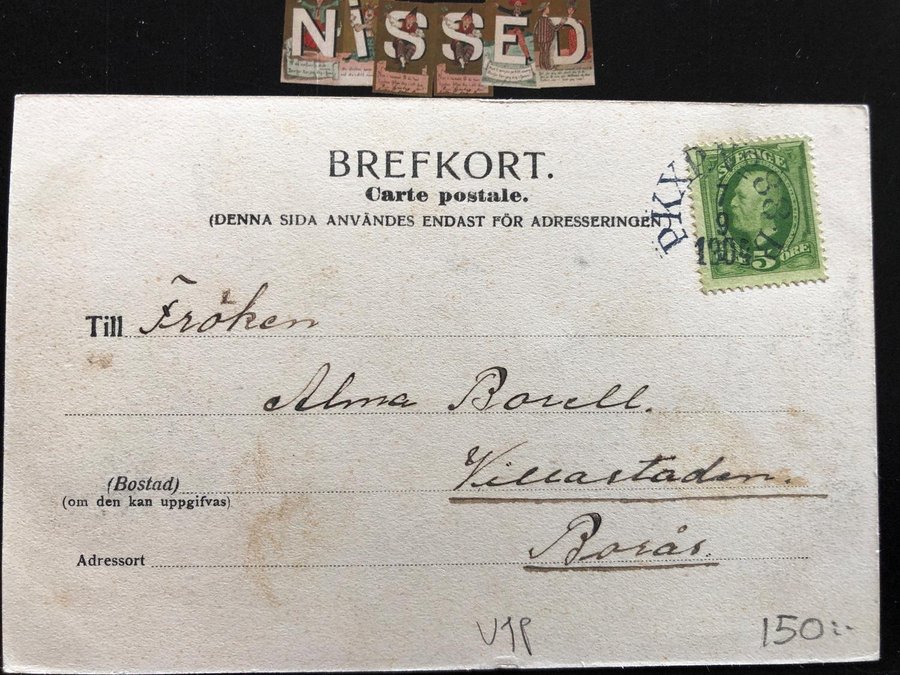 NiSSED
BREFKORT.
Carte postale.
(DENNA SIDA ANVÄNDES ENDAST FÖR ADRESSERINGEN
SVERIGE
PKXP
9
5 ÖRE
Till Fröken
Alma Borell.
(Bostad)
(om den kan uppgifvas)
Villastaden.
Adressort
Borås.
150:-